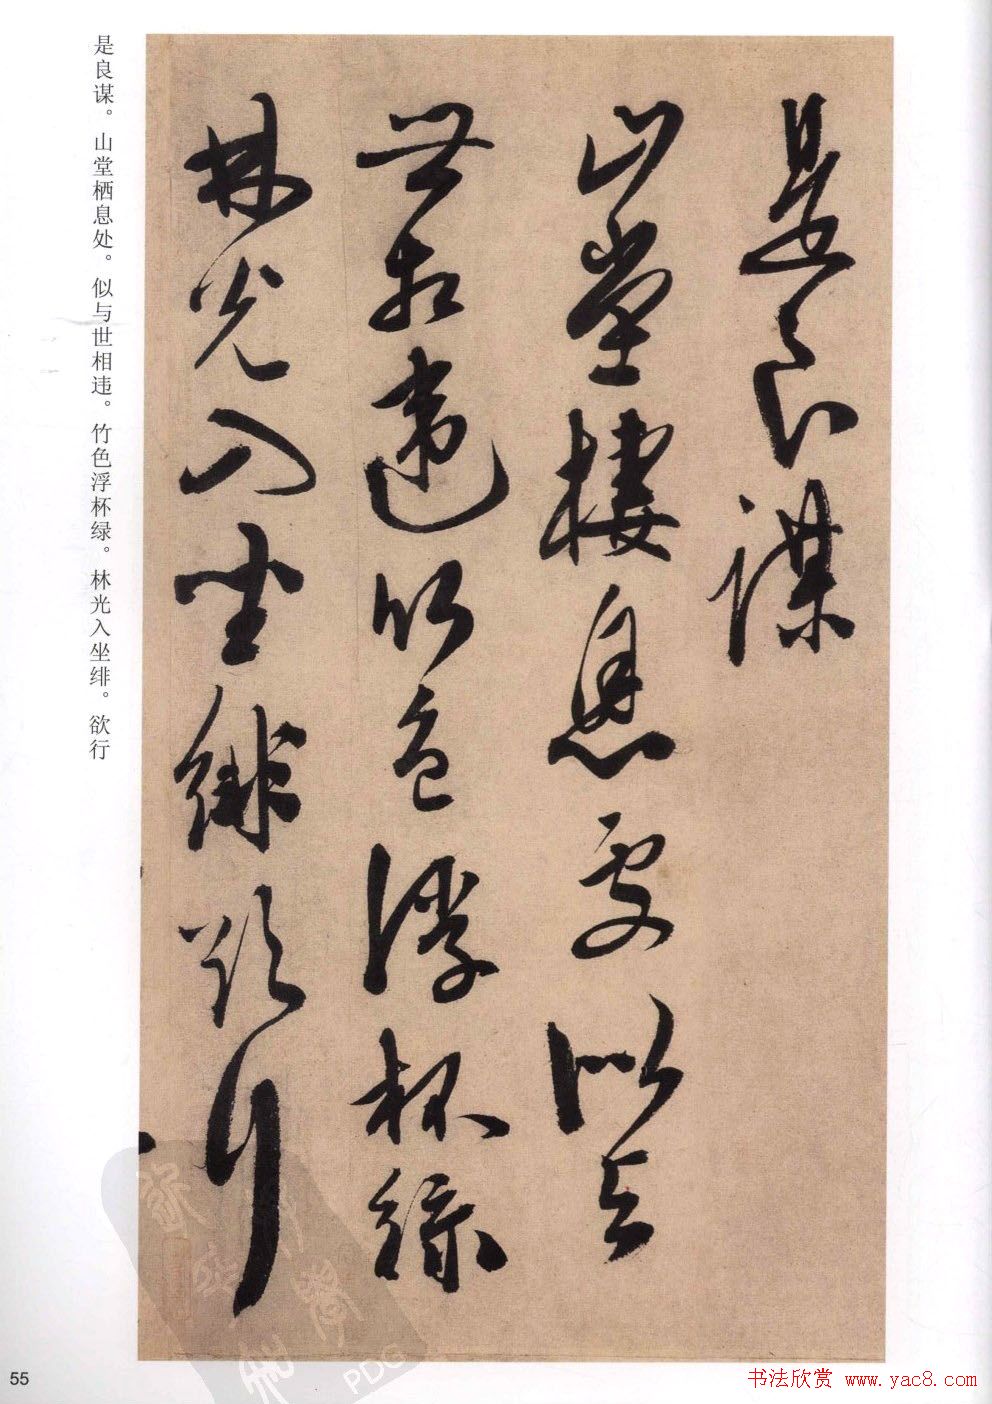 是良谋
山堂棲息处似与
世相違竹色浮杯緑
林光入坐緋欲行
是良谋。山堂栖息处。似与世相违。竹色浮杯绿。林光入坐绯。欲行
55
PDG
书法欣赏 www.yac8.com